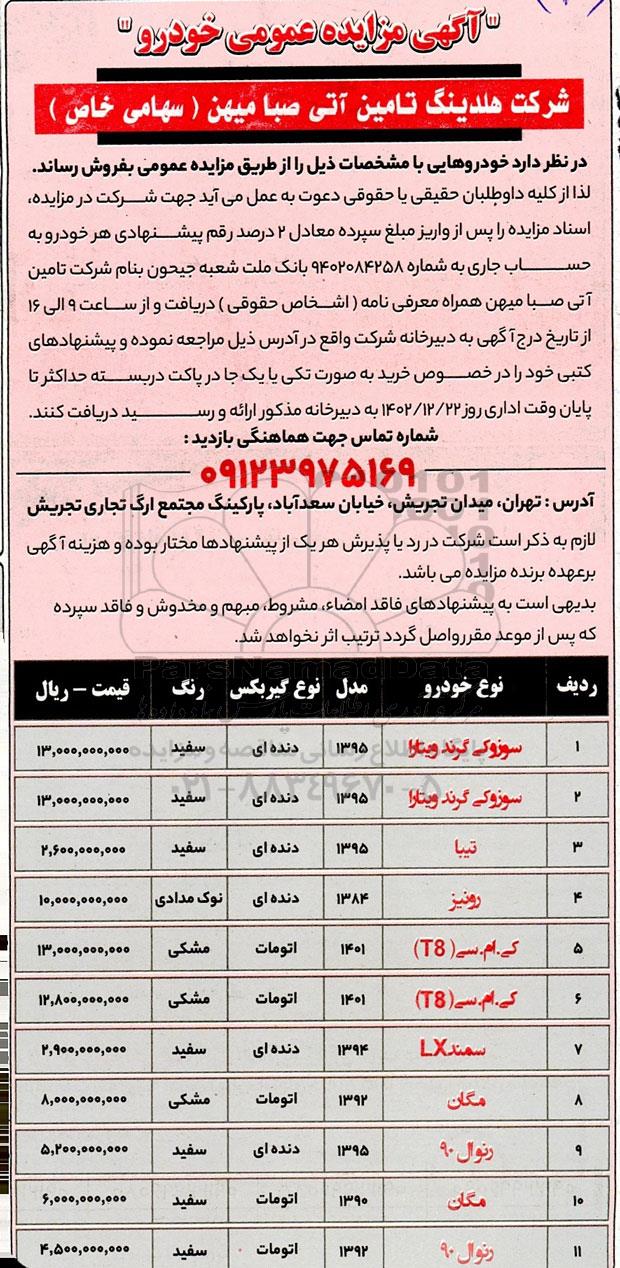 "آگهی مزایده عمومی خودرو"
شرکت هلدینگ تامین آتی صبا میهن ( سهامی خاص )
در نظر دارد خودروهایی با مشخصات ذیل را از طریق مزایده عمومی بفروش رساند.
لذا از کلیه داوطلبان حقیقی یا حقوقی دعوت به عمل می آید جهت شرکت در مزایده،
اسناد مزایده را پس از واریز مبلغ سپرده معادل ۲ درصد رقم پیشنهادی هر خودرو به
حساب جاری به شماره ۹۴۰۲۰۸۴۲۵۸ بانک ملت شعبه جیحون بنام شرکت تامین
آتی صبا میهن همراه معرفی نامه ( اشخاص حقوقی ) دریافت و از ساعت ۹ الی ۱۶
از تاریخ درج آگهی به دبیرخانه شرکت واقع در آدرس ذیل مراجعه نموده و پیشنهادهای
کتبی خود را در خصوص خرید به صورت تکی یا یک جا در پاکت دربسته حداکثر تا
پایان وقت اداری روز ۱۴۰۲/۱۲/۲۲ به دبیرخانه مذکور ارائه و رسید دریافت کنند.
شماره تماس جهت هماهنگی بازدید :
۰۹۱۲۳۹۷۵۱۶۹
آدرس : تهران، میدان تجریش، خیابان سعدآباد، پارکینگ مجتمع ارگ تجاری تجریش
لازم به ذکر است شرکت در رد یا پذیرش هر یک از پیشنهادها مختار بوده و هزینه آگهی
برعهده برنده مزایده می باشد.
بدیهی است به پیشنهادهای فاقد امضاء، مشروط، مبهم و مخدوش و فاقد سپرده
که پس از موعد مقرر واصل گردد ترتیب اثر نخواهد شد.
ردیف نوع خودرو مدل نوع گیربکس رنگ قیمت – ریال
۱ سوزوکی گرند ویتارا ۱۳۹۵ دنده ای سفید ۱۳,۰۰۰,۰۰۰,۰۰۰
۲ سوزوکی گرند ویتارا ۱۳۹۵ دنده ای سفید ۱۳,۰۰۰,۰۰۰,۰۰۰
۳ تیبا ۱۳۹۵ دنده ای سفید ۲,۶۰۰,۰۰۰,۰۰۰
۴ رونیز ۱۳۸۴ دنده ای نوک مدادی ۱۰,۰۰۰,۰۰۰,۰۰۰
۵ کی.ام.سی (T8) ۱۴۰۱ اتومات مشکی ۱۳,۰۰۰,۰۰۰,۰۰۰
۶ کی.ام.سی (T8) ۱۴۰۱ اتومات مشکی ۱۲,۸۰۰,۰۰۰,۰۰۰
۷ سمند LX ۱۳۹۴ دنده ای سفید ۲,۹۰۰,۰۰۰,۰۰۰
۸ مگان ۱۳۹۲ اتومات مشکی ۸,۰۰۰,۰۰۰,۰۰۰
۹ رنو ال ۹۰ ۱۳۹۵ دنده ای سفید ۵,۲۰۰,۰۰۰,۰۰۰
۱۰ مگان ۱۳۹۰ اتومات سفید ۶,۰۰۰,۰۰۰,۰۰۰
۱۱ رنو ال ۹۰ ۱۳۹۲ اتومات سفید ۴,۵۰۰,۰۰۰,۰۰۰
ParsNamadData
پایگاه اطلاع رسانی مناقصه و مزایده
۰۲۱-۸۸۳۴۹۶۷۰-۵